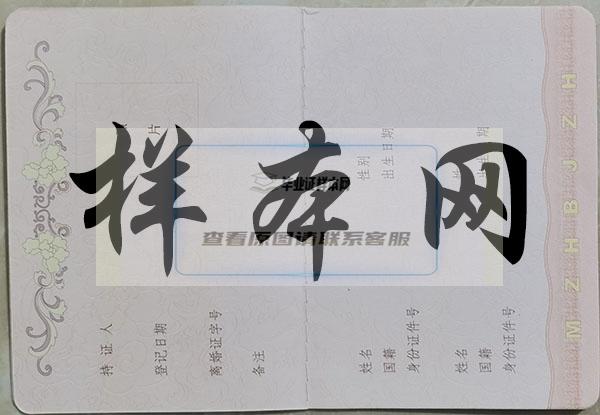 样本网
毕业证样本网
查看原图请联系客服
片
持证人
登记日期
离婚证字号
备注
姓名 性别
国籍 出生日期
身份证件号
姓名 性别
国籍 出生日期
身份证件号
MZHBJZH